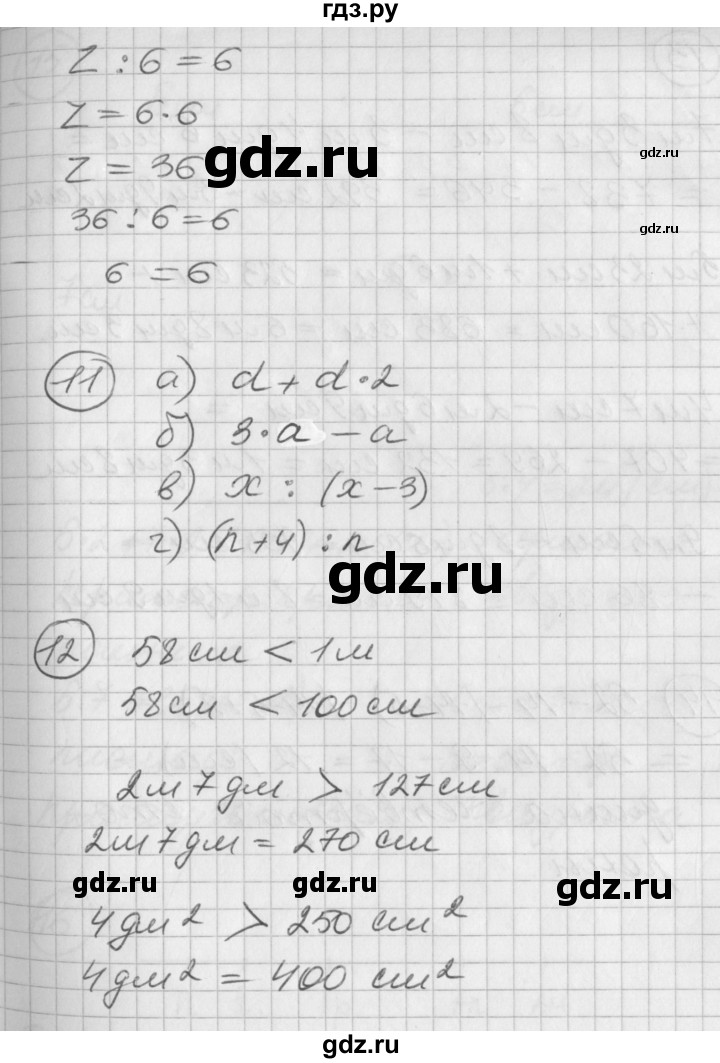 гдз.ру
z : 6 = 6
z = 6·6
z = 36
gdz.ru
gdz.ru
36 : 6 = 6
gdz.ru
6 = 6
11 а) d + d·2
б) 3·a - a
в) x : (x - 3)
г) (n + 4) : n
gdz.ru
12 58 см < 1 м
58 см < 100 см
2 м 7 дм > 127 см
2 м 7 дм = 270 см
gdz.ru
gdz.ru
gdz.ru
4 дм² > 250 см²
4 дм² = 400 см²
gdz.ru